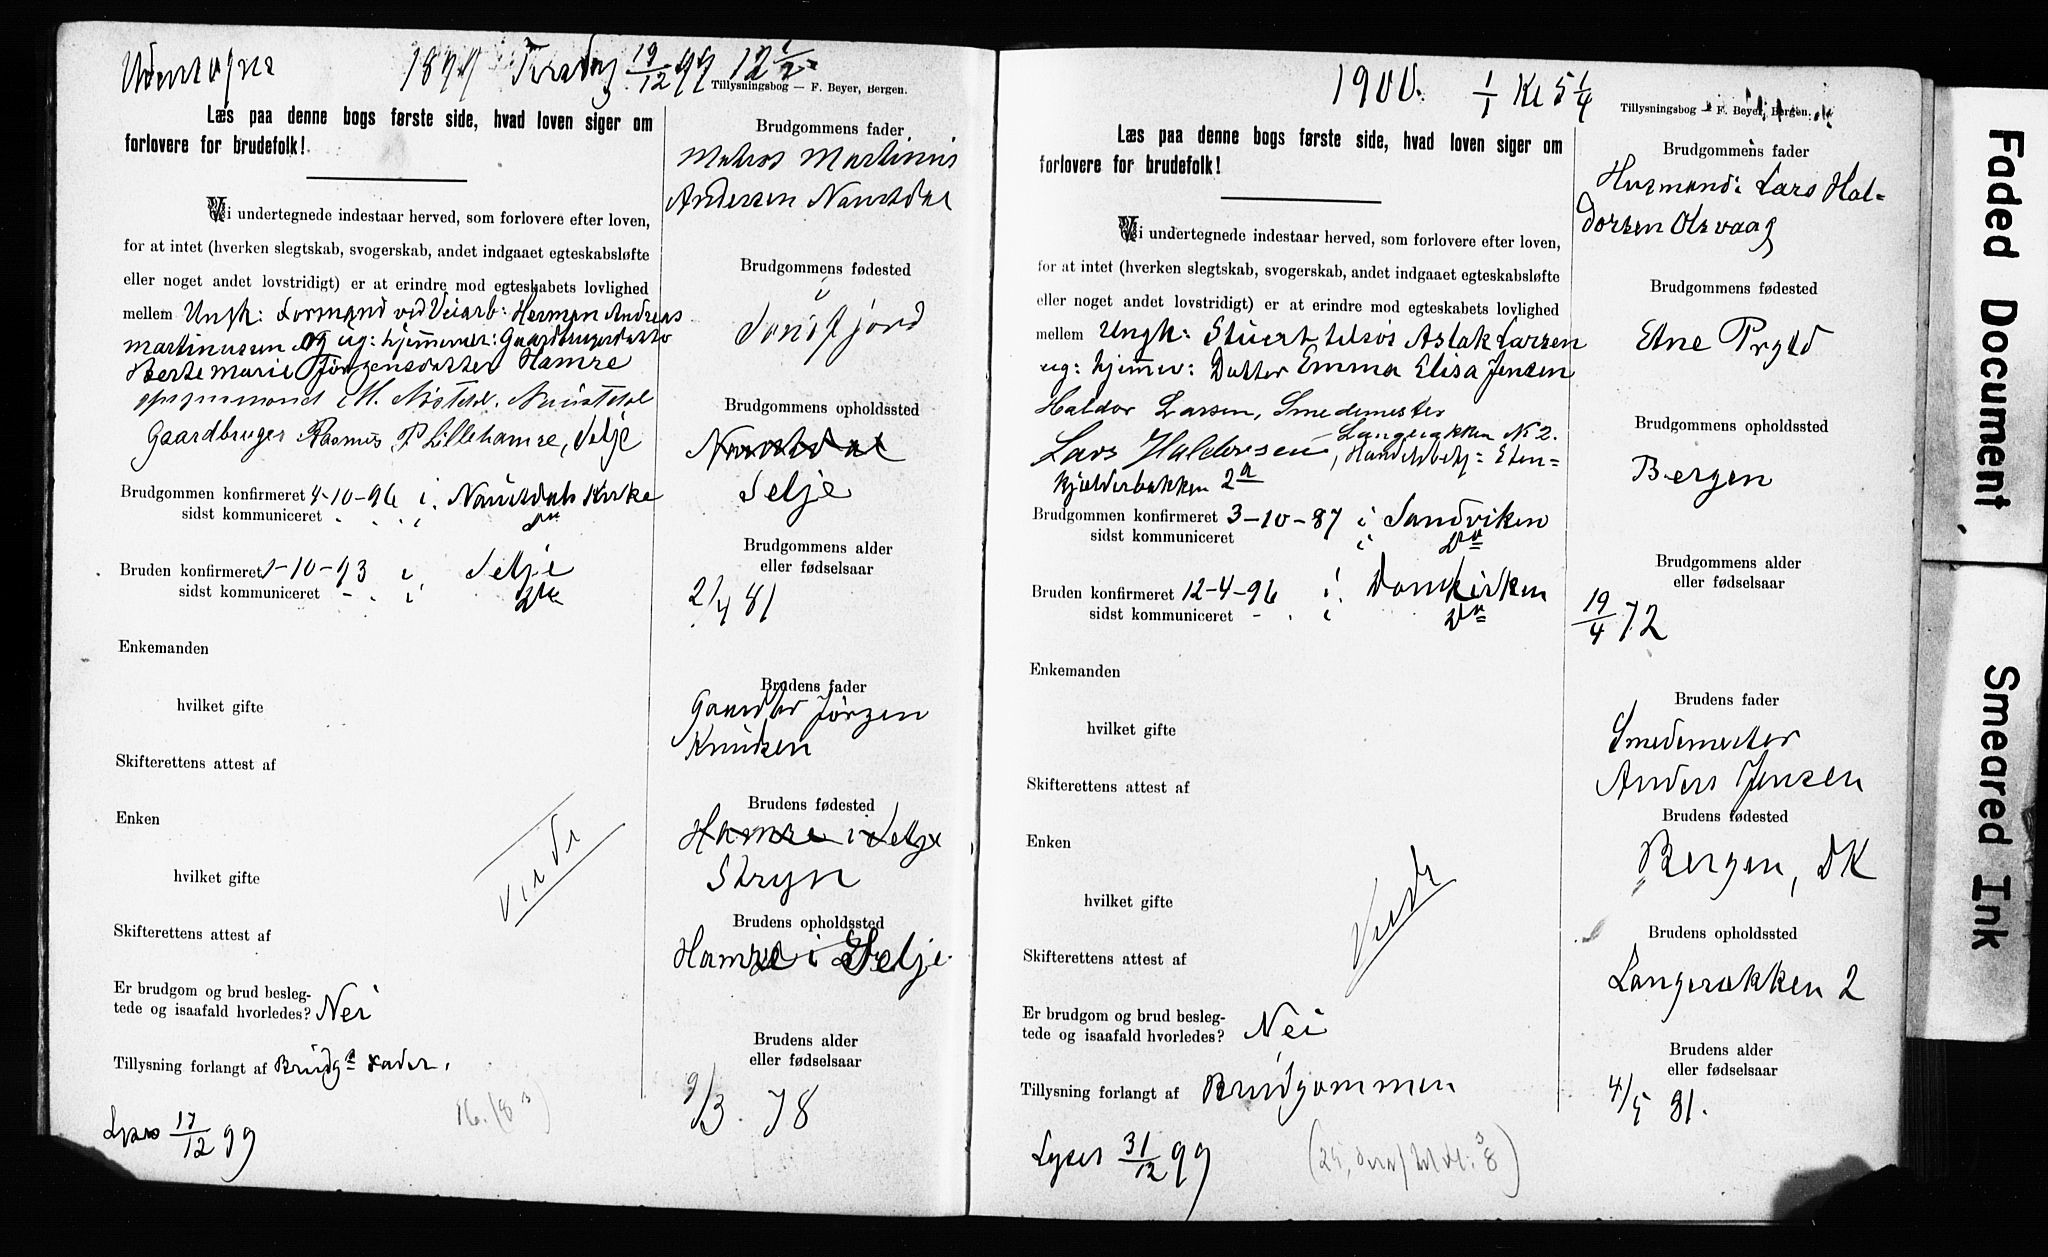 1899 Tirsdag 19/12 99 12 1/2
Tillysningsbog — F. Beyer, Bergen.
Læs paa denne bogs første side, hvad loven siger om
forlovere for brudefolk!
Vi undertegnede indestaar herved, som forlovere efter loven,
for at intet (hverken slegtskab, svogerskab, andet indgaaet egteskabsløfte
eller noget andet lovstridigt) er at erindre mod egteskabets lovlighed
mellem Ungk: Formand ved Veiarb: Herman Andreas
Martinussen og ug: hjemmev: Gaardbrugerdatter
Berte Marie Jørgensdatter Hamre
M. Nøstdal. Naustdal
Gaardbruger Rasmus P. Lillehamre, Selje
Brudgommen konfirmeret 4-10-96 i Naustdals Kirke
sidst kommuniceret i do
Bruden konfirmeret 1-10-93 i Selje
sidst kommuniceret i do
Enkemanden
hvilket gifte
Skifterettens attest af
Enken
hvilket gifte
Skifterettens attest af
Viede
Er brudgom og brud beslegtede og isaafald hvorledes? Nei
Tillysning forlangt af Brudgs Fader.
Lyses 17/12 99
16. (8 3)
Brudgommens fader
Matros Martinus
Andersen Naustdal
Brudgommens fødested
i
Søndfjord
Brudgommens opholdssted
Naustdal
Selje
Brudgommens alder
eller fødselsaar
2/4 81
Brudens fader
Gaardbr Jørgen
Knudsen
Brudens fødested
Hamre i Selje
Stryn
Brudens opholdssted
Hamre i Selje
Brudens alder
eller fødselsaar
9/3. 78
1900. 1/1 Kl 5 1/4
Tillysningsbog — F. Beyer, Bergen.
Læs paa denne bogs første side, hvad loven siger om
forlovere for brudefolk!
Vi undertegnede indestaar herved, som forlovere efter loven,
for at intet (hverken slegtskab, svogerskab, andet indgaaet egteskabsløfte
eller noget andet lovstridigt) er at erindre mod egteskabets lovlighed
mellem Ungk: Stuert tilsøs Aslak Larsen
ug: hjemmev: Datter Emma Elisa Jensen
Haldor Larsen, Smedemester
Langerækken N 2.
Lars Haldorsen, Handelsbetj: Eten=
kjelderbakken 2a
Brudgommen konfirmeret 3-10-87 i Sandviken
sidst kommuniceret i do
Bruden konfirmeret 12-4-96 i Domkirken
sidst kommuniceret i do
Enkemanden
hvilket gifte
Skifterettens attest af
Enken
hvilket gifte
Skifterettens attest af
Viede
Er brudgom og brud beslegtede og isaafald hvorledes? Nei
Tillysning forlangt af Brudgommen
Lyses 31/12 99
Brudgommens fader
Husmand: Lars Hal=
dorsen Olsvaag
Brudgommens fødested
Etne Prgld
Brudgommens opholdssted
Bergen
Brudgommens alder
eller fødselsaar
19/4 72
Brudens fader
Smedemester
Anders Jensen
Brudens fødested
Bergen, DK
Brudens opholdssted
Langerækken 2
Brudens alder
eller fødselsaar
4/5 81.
Faded Document
Smeared Ink